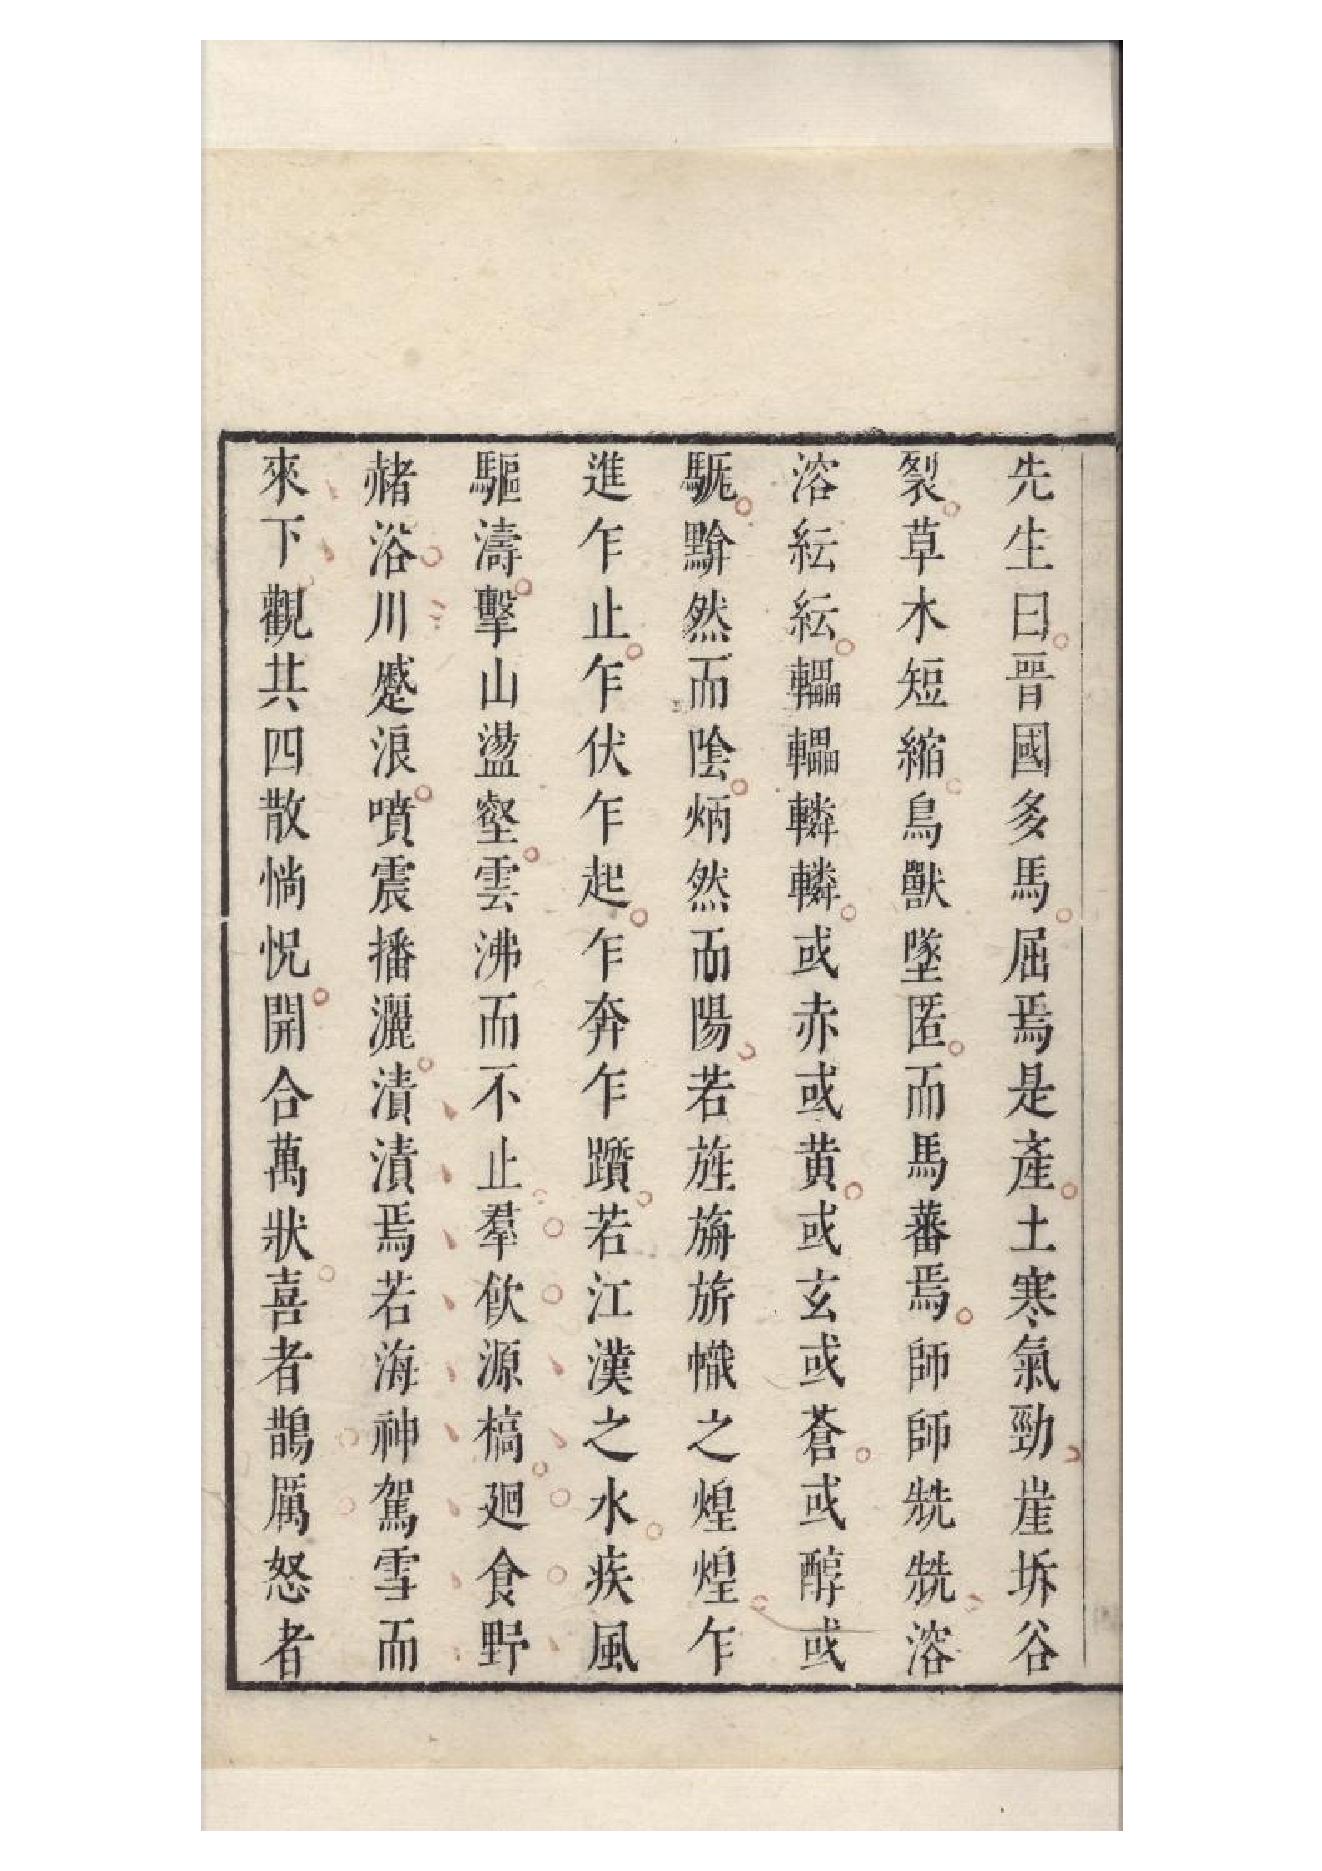 先生曰晉國多馬屈焉是產土寒氣勁崖坼谷
裂草木短縮鳥獸墜匿而馬蕃焉師師兟兟溶
溶紜紜轠轠轔轔或赤或黄或玄或蒼或醇或
駹黭然而陰炳然而陽若旌旃旂幟之煌煌乍
進乍止乍伏乍起乍奔乍躓若江漢之水疾風
驅濤擊山盪壑雲沸而不止羣飲源槁廻食野
赭浴川蹙浪噴震播灑漬漬焉若海神駕雪而
來下觀其四散惝怳開合萬狀喜者鵲厲怒者